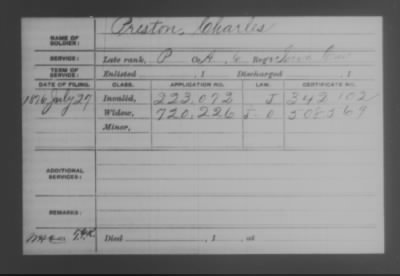 Preston, Charles
NAME OF SOLDIER:
SERVICE: Late rank, P Co. A, 6 Reg't Iowa Cav
TERM OF SERVICE: Enlisted , 1 Discharged , 1
DATE OF FILING. CLASS. APPLICATION NO. LAW. CERTIFICATE NO.
1876 July 27 Invalid, 223.072 J 342.102
Widow, 720.226
Minor,
ADDITIONAL SERVICES:
REMARKS:
Died , 1 , at